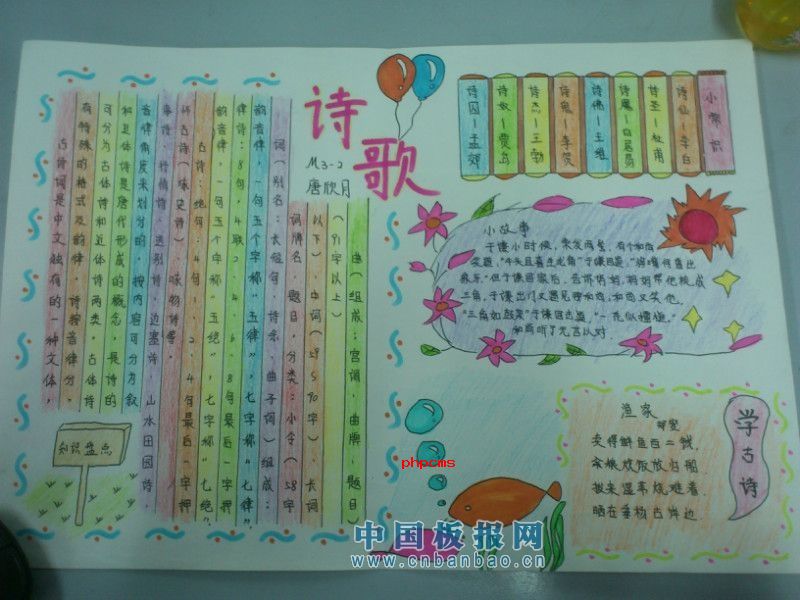 诗歌
M3-2
唐欣月
小常识
诗仙—李白
诗圣—杜甫
诗魔—白居易
诗佛—王维
诗鬼—李贺
诗杰—王勃
诗奴—贾岛
诗囚—孟郊
古诗词是中文独有的一种文体，
有特殊的格式及韵律，诗按音律分，
可分为古体诗和近体诗两类，古体诗
和近体诗是唐代形成的概念，是诗的
音律角度来划分的，按内容可分为叙
事诗，抒情诗，送别诗，边塞诗，山水田园诗，
怀古诗（咏史诗） 咏物诗等。
古诗：绝句：4句，1.2.4句最后一字押
韵音律，一句五个字称“五绝”，七字称“七绝”
律诗：8句，4联2.4.6.8句最后一字押
韵音律，一句五个字称“五律”，七字称“七律”
词（别名：长短句，诗余，曲子词）组成：
词牌名，题目，分类：小令（58字
以下） 中词（59~90字） 长词
（91字以上）
曲（组成：宫调，曲牌，题目）
知识盘点
小故事
于谦小时候，梳发两髻，有个和尚
笑道：“牛头且喜生龙角”于谦回击，“狗嘴何曾出
象牙”但于谦回家后，告诉妈妈，妈妈帮他梳成
三角，于谦出门又遇见哪和尚，和尚又笑他，
“三角如鼓架”于谦回击道，“一秃似擂槌。”
和尚听了无言以对
学古诗
渔家
卖得鲜鱼百二钱，
籴粮炊饭放归船
拔来湿苇烧难着
晒在垂杨古岸边
phpcms
中国板报网
www.cnbanbao.cn